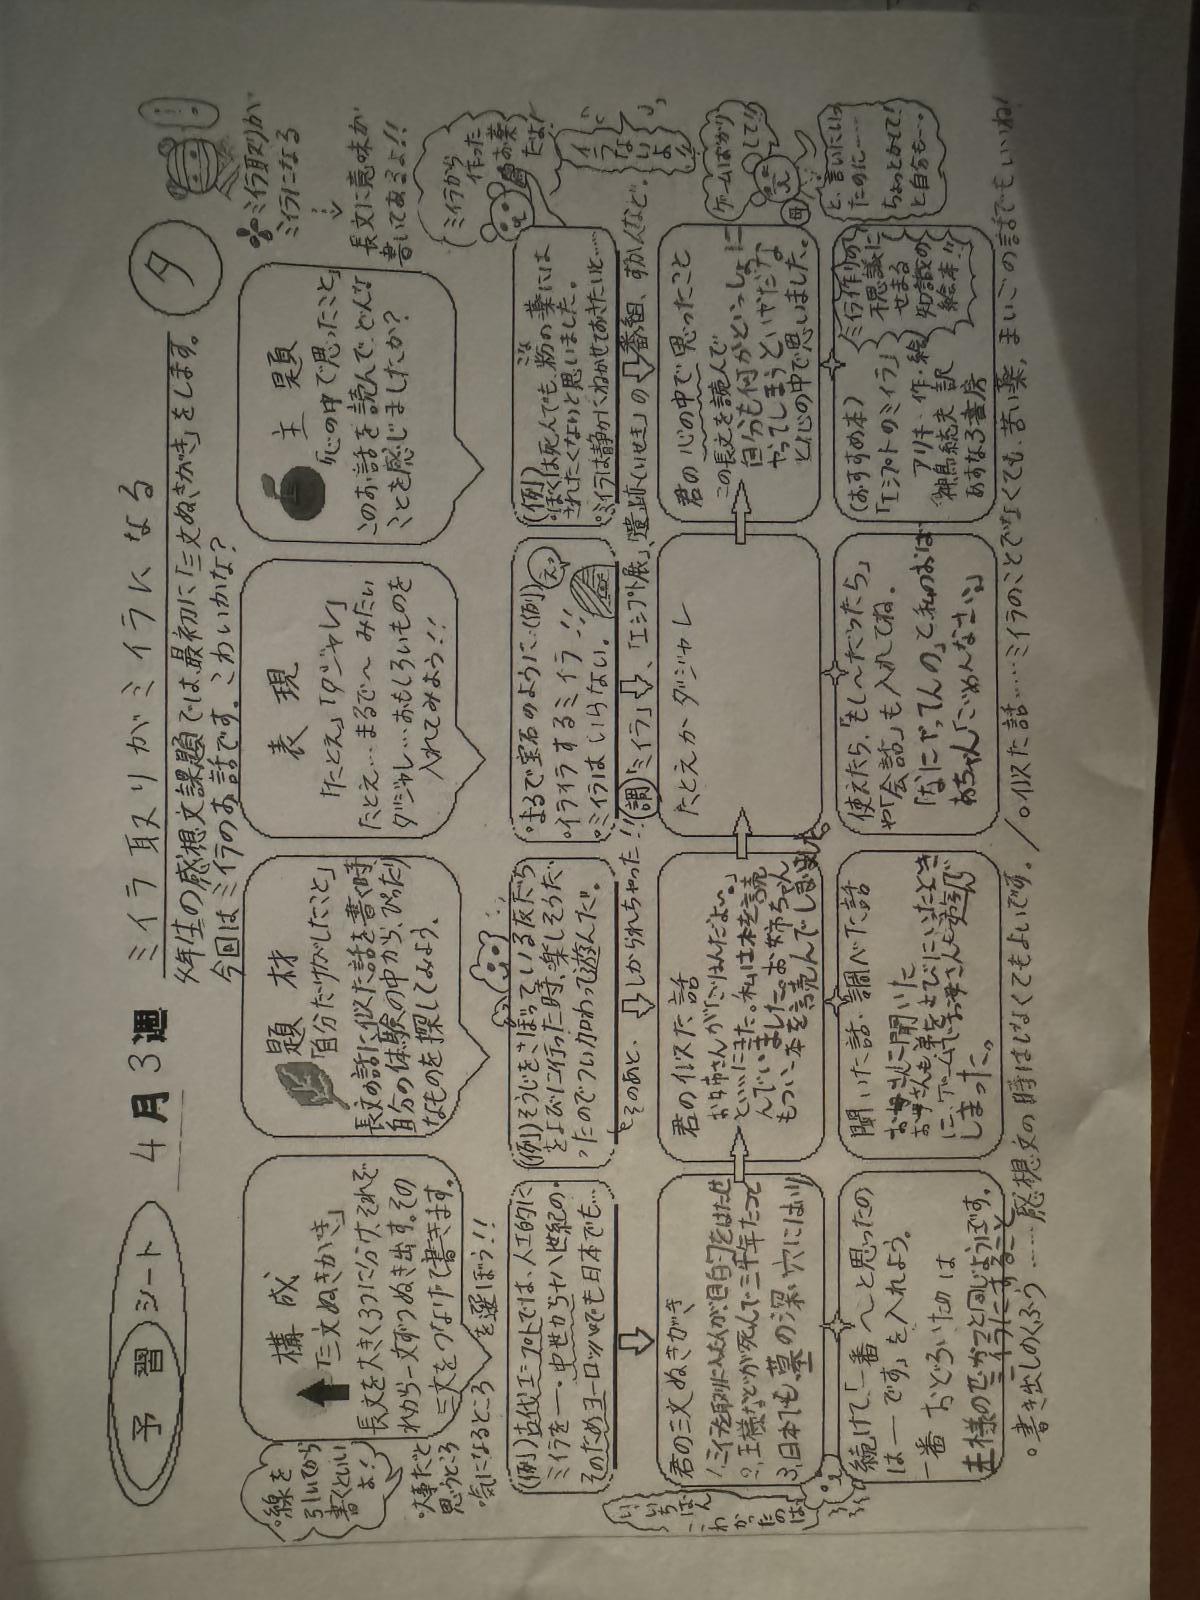 予習シート
4月3週
ミイラ取りがミイラになる
タ
年生の感想文課題では、最初に「三文ぬきがき」をします。
今回はミイラのお話です。こわいかな?
ミイラ取りが
ミイラになる
長文に意味が
書いてあるよ!!
線を
引いてから
書くといい
よ!
構成
「三文ぬきがき」
長文を大きく3つに分け、それぞ
れから一文ずつぬき出す。その
三文をつなげて書きます。
・大事だと
思うところ
・気になるところ
を選ぼう!!
題材
「自分だけがしたこと」
長文の話に似た話を書く時、
自分の体験の中から、ぴったり
なものを探してみよう。
表現
「たとえ」「ダジャレ」
たとえ…まるで〜みたい
ダジャレ…おもしろいものを
入れてみよう!!
主題
「心の中で思ったこと」
このお話を読んで、どんな
ことを感じましたか?
(例)古代エジプトでは、人工的に
ミイラを―・中世から十八世紀の、
そのためヨーロッパでも日本でも…
(例)そうじをさぼっている友だち
をよびに行った時、楽しそうだ
ったのでついかわって遊んだ。
そのあと、
しかられちゃった!!
・まるで宝石のように(例)
・イライラするミイラ!!
・ミイラはいらない。
えっ
(例)
・ぼくは死んでも、粉の薬には
こな
されたくないと思いました。
・ミイラは静かにねかせておきたいと……
ミイラから
作った
お薬
だよ!
調
「ミイラ」、「エジプト展」、「遺跡(いせき)」の番組、ずかんなど。
君の三文ぬきがき
1、ミイラを取りに入った人が、目的をはたせ
2、王様などが死んで三千年たって
3、日本でも、墓の深い穴にはい
君の似た話
お姉さんが「ごはんだよ〜。」
といいにきた。私は本を読
んでいました。お姉ちゃん
もつい本を読んでしまいました。
たとえかダジャレ
君の心の中で思ったこと
この長文を読んで
自分も何かといっしょに
やってしまうといやだな
と心の中で思いました。
ゲームばかり
して!!
母
と、言いにいっ
たのに……
ちょっとかして!!
と自分も…。
いちばん
こわ
かっ
たの
は
続けて、「一番〜と思ったの
は――です」を入れよう。
一番おどろいたのは
聞いた話・調べた話
お母さんに聞いた
お母さんも弟をよびにいったとき
に、ゲームでお母さんも遊んで
しまった。
使えたら、「もし〜だったら」
や「会話」も入れてね。
「なにやってんの」と私のおば
あちゃん「ごめんなさい。」
(おすすめ本)
「エジプトのミイラ」
アリキ・作・絵
神鳥統夫訳
あすなろ書房
ミイラ作りの
不思議に
せまる
知識の
絵本!!
。書き出しのくふう……感想文の時はなくてもよいです。/。似た話……ミイラのことでなくても、苦い薬、まいごの話でもいいね!